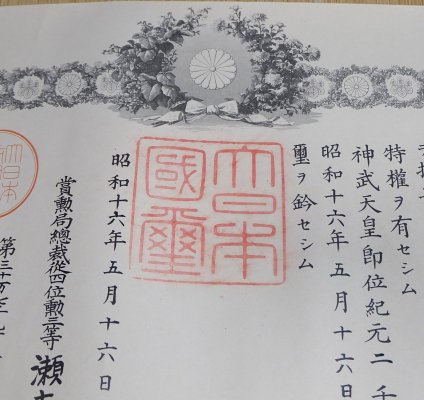 特權ヲ有セシム
神武天皇卽位紀元二千
昭和十六年五月十六日
璽ヲ鈐セシム
大日本
國璽
昭和十六年五月十六日
賞勲局總裁從四位勲三等
大日本